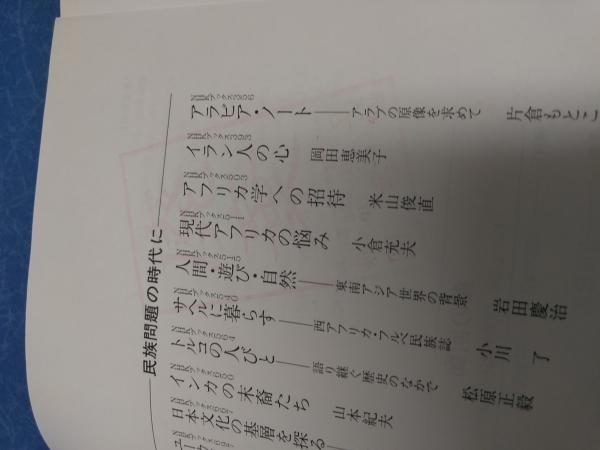 民族問題の時代に
NHKブックス356
アラビア・ノート──アラブの原像を求めて 片倉もとこ
NHKブックス393
イラン人の心 岡田恵美子
NHKブックス503
アフリカ学への招待 米山俊直
NHKブックス511
現代アフリカの悩み 小倉充夫
NHKブックス515
人間・遊び・自然──東南アジア世界の背景 岩田慶治
NHKブックス540
サヘルに暮らす──西アフリカ・フルベ民族誌 小川 了
NHKブックス564
トルコの人びと──語り継ぐ歴史のなかで 松原正毅
NHKブックス600
インカの末裔たち 山本紀夫
NHKブックス667
日本文化の基層を探る